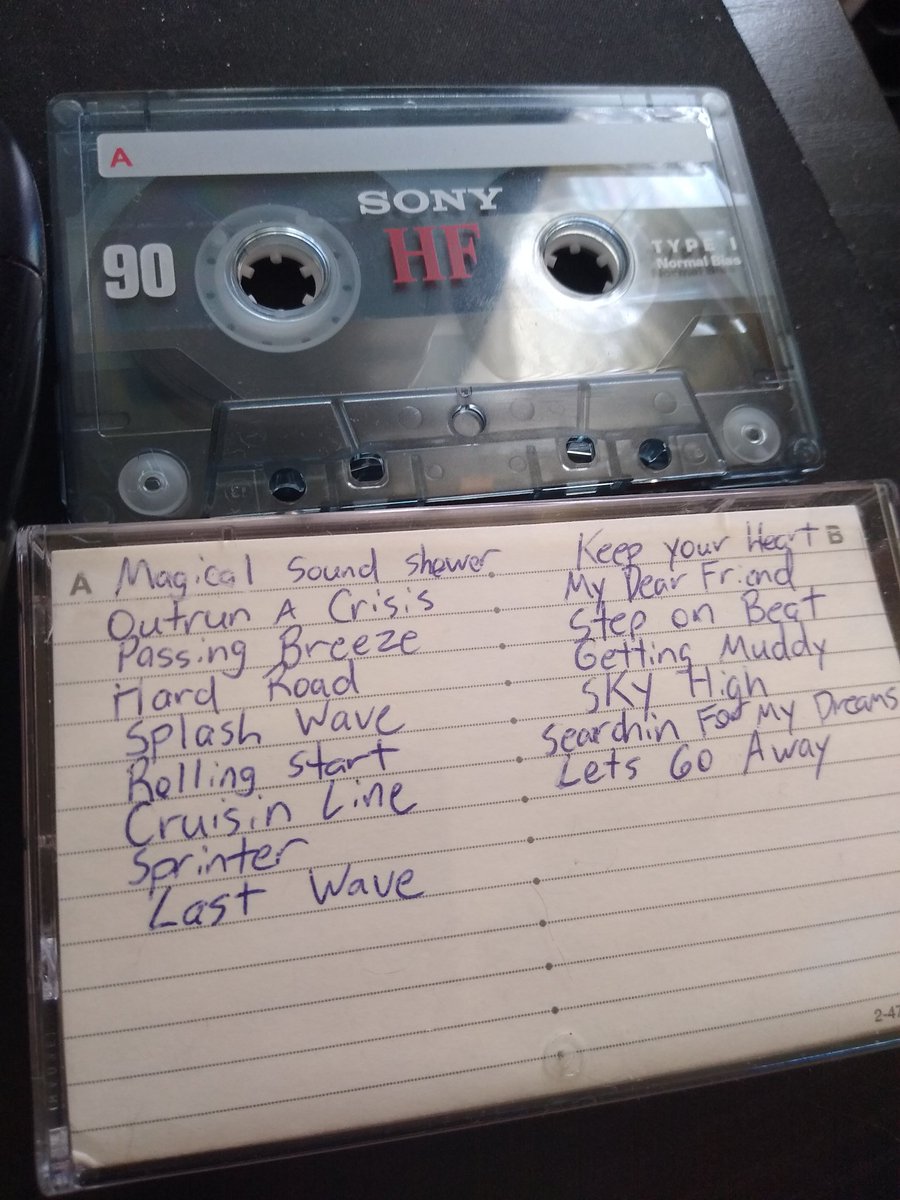 A
SONY
HF
90
TYPE I
Normal Bias
A
Magical Sound Shower
Outrun A Crisis
Passing Breeze
Hard Road
Splash Wave
Rolling Start
Cruisin Line
Sprinter
Last Wave
B
Keep your Heart
My Dear Friend
Step on Beat
Getting Muddy
Sky High
Searchin For My Dreams
Lets Go Away
2-47